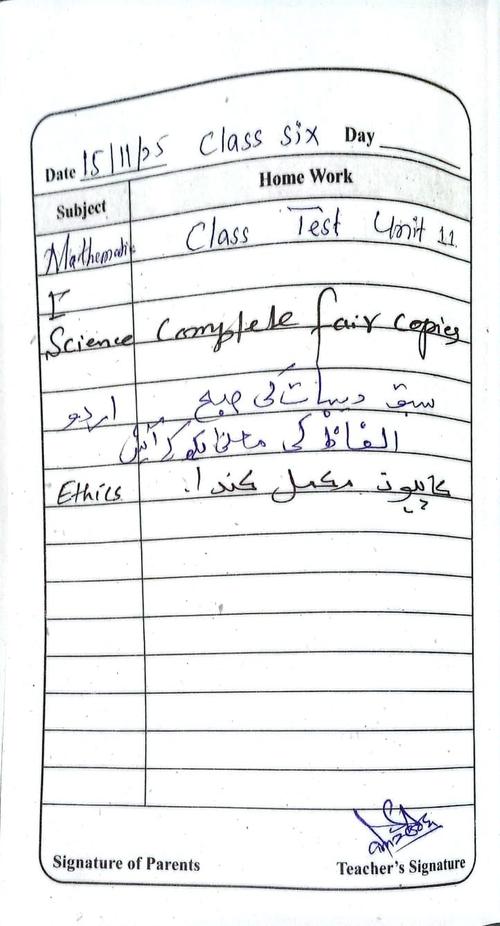 Date 15/11/25 Class six Day
Subject Home Work
Mathematic Class Test Unit 11
I
Science Complete fair copies
اردو سبق دیہات کی صبح
الفاظ کی معنی لکھ کر آئیں
Ethics ڪاپيون مڪمل ڪندا.
Signature of Parents Teacher's Signature